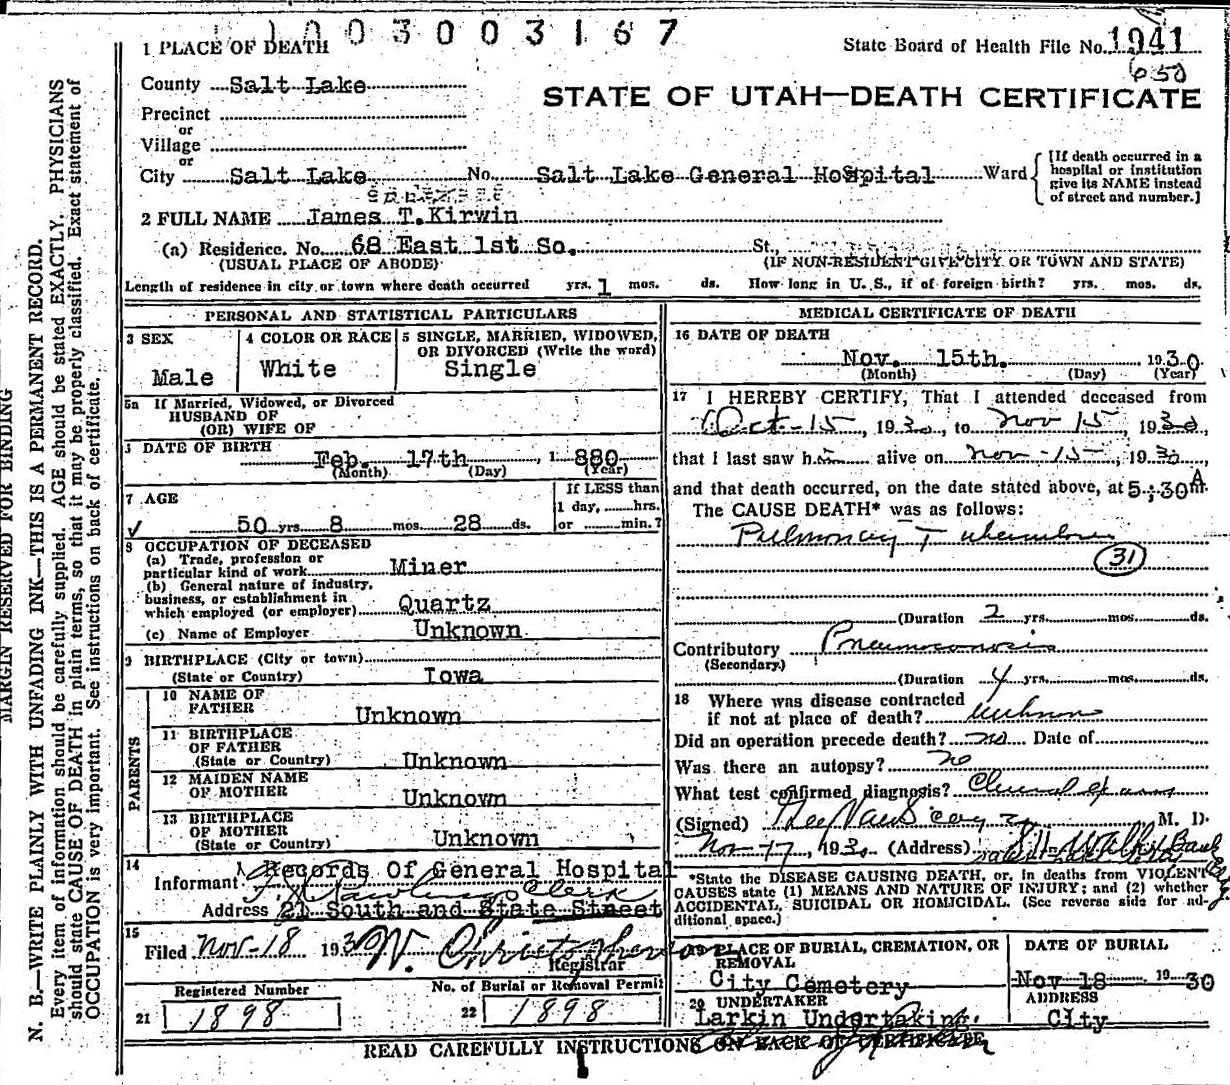 1003003167
1 PLACE OF DEATH
State Board of Health File No. 1941
650
County Salt Lake
STATE OF UTAH—DEATH CERTIFICATE
Precinct
or
Village
or
City Salt Lake No. Salt Lake General Hospital Ward
[If death occurred in a
hospital or institution
give its NAME instead
of street and number.]
2 FULL NAME James T. Kirwin
(a) Residence. No. 68 East 1st So. St.,
(USUAL PLACE OF ABODE) (IF NON-RESIDENT GIVE CITY OR TOWN AND STATE)
Length of residence in city or town where death occurred yrs. 1 mos. ds. How long in U. S., if of foreign birth? yrs. mos. ds.
PERSONAL AND STATISTICAL PARTICULARS
3 SEX
Male
4 COLOR OR RACE
White
5 SINGLE, MARRIED, WIDOWED,
OR DIVORCED (Write the word)
Single
5a If Married, Widowed, or Divorced
HUSBAND OF
(OR) WIFE OF
DATE OF BIRTH
Feb. 17th, 1880
(Month) (Day) (Year)
7 AGE
50 yrs. 8 mos. 28 ds.
If LESS than
1 day, hrs.
or min.?
8 OCCUPATION OF DECEASED
(a) Trade, profession or
particular kind of work Miner
(b) General nature of industry,
business, or establishment in
which employed (or employer) Quartz
(c) Name of Employer Unknown
9 BIRTHPLACE (City or town)
(State or Country) Iowa
PARENTS
10 NAME OF
FATHER Unknown
11 BIRTHPLACE
OF FATHER
(State or Country) Unknown
12 MAIDEN NAME
OF MOTHER Unknown
13 BIRTHPLACE
OF MOTHER
(State or Country) Unknown
14
Informant Records Of General Hospital
Clerk
Address 21 South and State Street
15
Filed Nov-18 1930 W. Christopherson
Registrar
Registered Number
21 1898
No. of Burial or Removal Permit
22 1898
MEDICAL CERTIFICATE OF DEATH
16 DATE OF DEATH
Nov. 15th. 1930
(Month) (Day) (Year)
17 I HEREBY CERTIFY, That I attended deceased from
Oct-15, 1930, to Nov 15, 1930,
that I last saw him alive on Nov-15-, 1930,
and that death occurred, on the date stated above, at 5:30 A m.
The CAUSE DEATH* was as follows:
Pulmonary Tuberculosis
31
(Duration 2 yrs. mos. ds.
Contributory Pneumoconosis
(Secondary.)
(Duration 4 yrs. mos. ds.
18 Where was disease contracted
if not at place of death? Unknown
Did an operation precede death? no Date of
Was there an autopsy? no
What test confirmed diagnosis? Clinical
(Signed) M. D.
Nov-17, 1930 (Address) Walker Bank
*State the DISEASE CAUSING DEATH, or, in deaths from VIOLENT
CAUSES state (1) MEANS AND NATURE OF INJURY; and (2) whether
ACCIDENTAL, SUICIDAL OR HOMICIDAL. (See reverse side for ad-
ditional space.)
19 PLACE OF BURIAL, CREMATION, OR
REMOVAL
City Cemetery
DATE OF BURIAL
Nov 18 1930
20 UNDERTAKER
Larkin Undertaking.
ADDRESS
City
READ CAREFULLY INSTRUCTIONS ON BACK OF CERTIFICATE
MARGIN RESERVED FOR BINDING
N. B.—WRITE PLAINLY WITH UNFADING INK—THIS IS A PERMANENT RECORD.
Every item of information should be carefully supplied. AGE should be stated EXACTLY. PHYSICIANS
should state CAUSE OF DEATH in plain terms, so that it may be properly classified. Exact statement of
OCCUPATION is very important. See instructions on back of certificate.